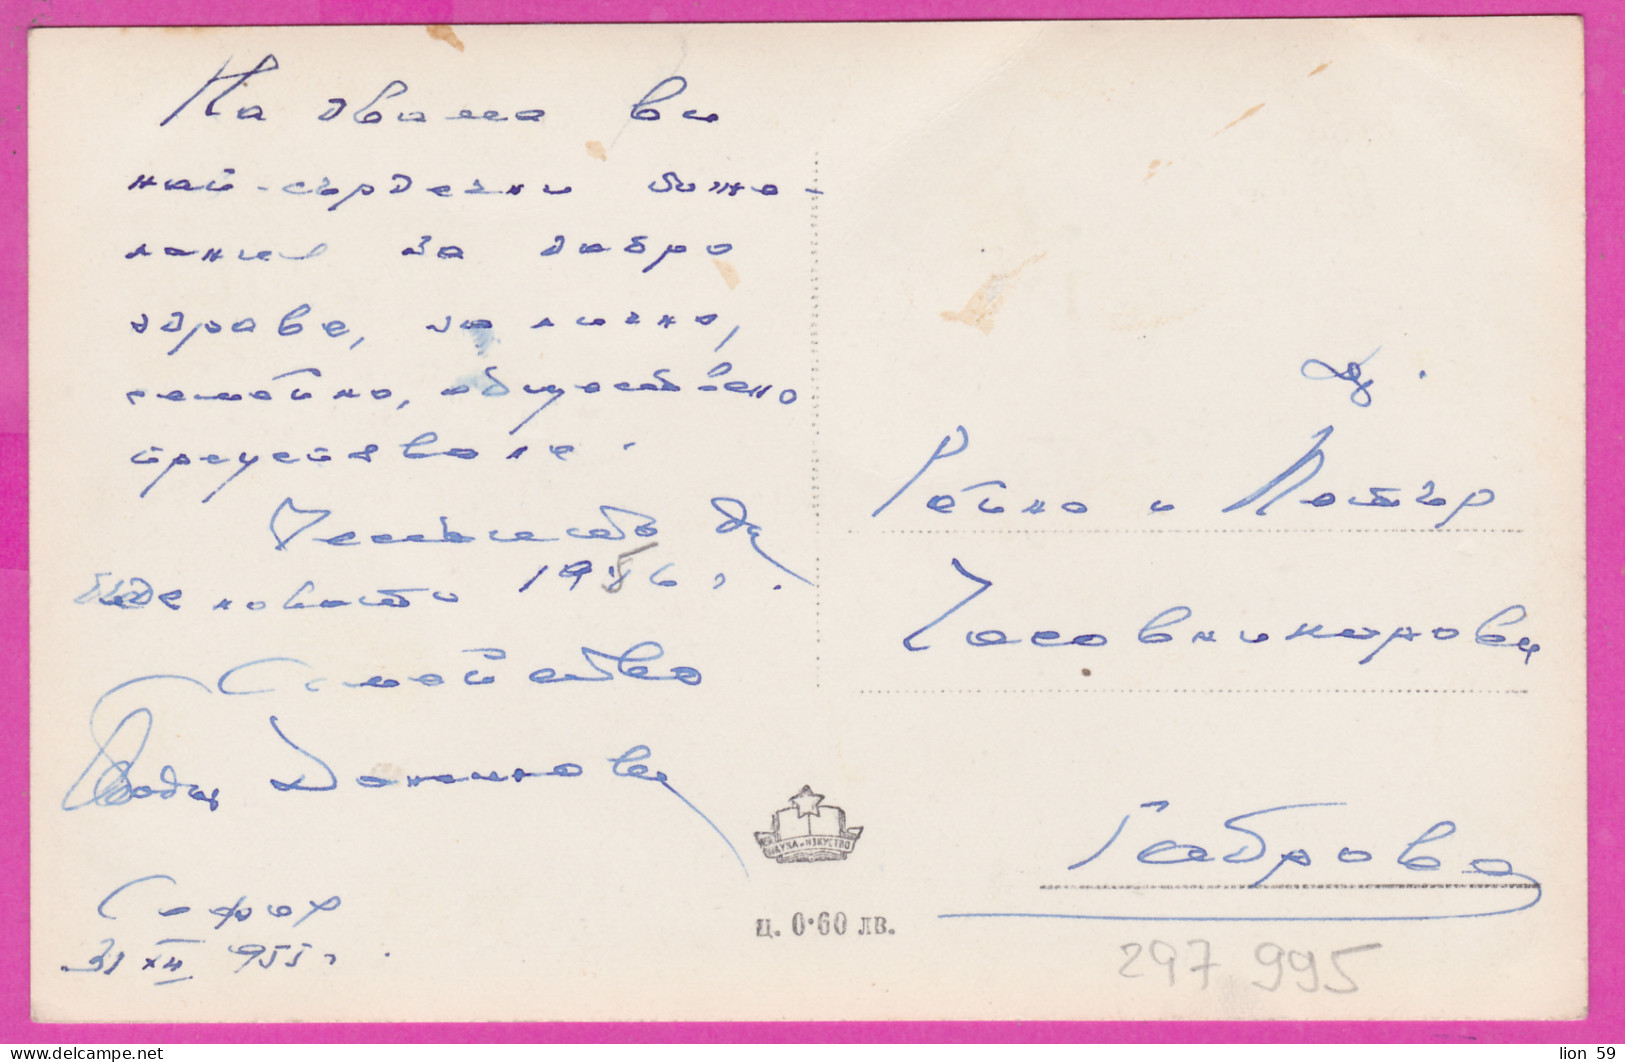 На двама ви
най-сърдечни поже-
лания за добро
здраве, за лично,
семейно, обществено
преуспяване.
Честита да
бъде новата 1956 г.
Семейство
Данинови
София
31 XII 955 г.
Др.
Райно и Петър
Часовникарови
Габрово
НАУКА И ИЗКУСТВО
ц. 0·60 лв.
297 995
lion 59